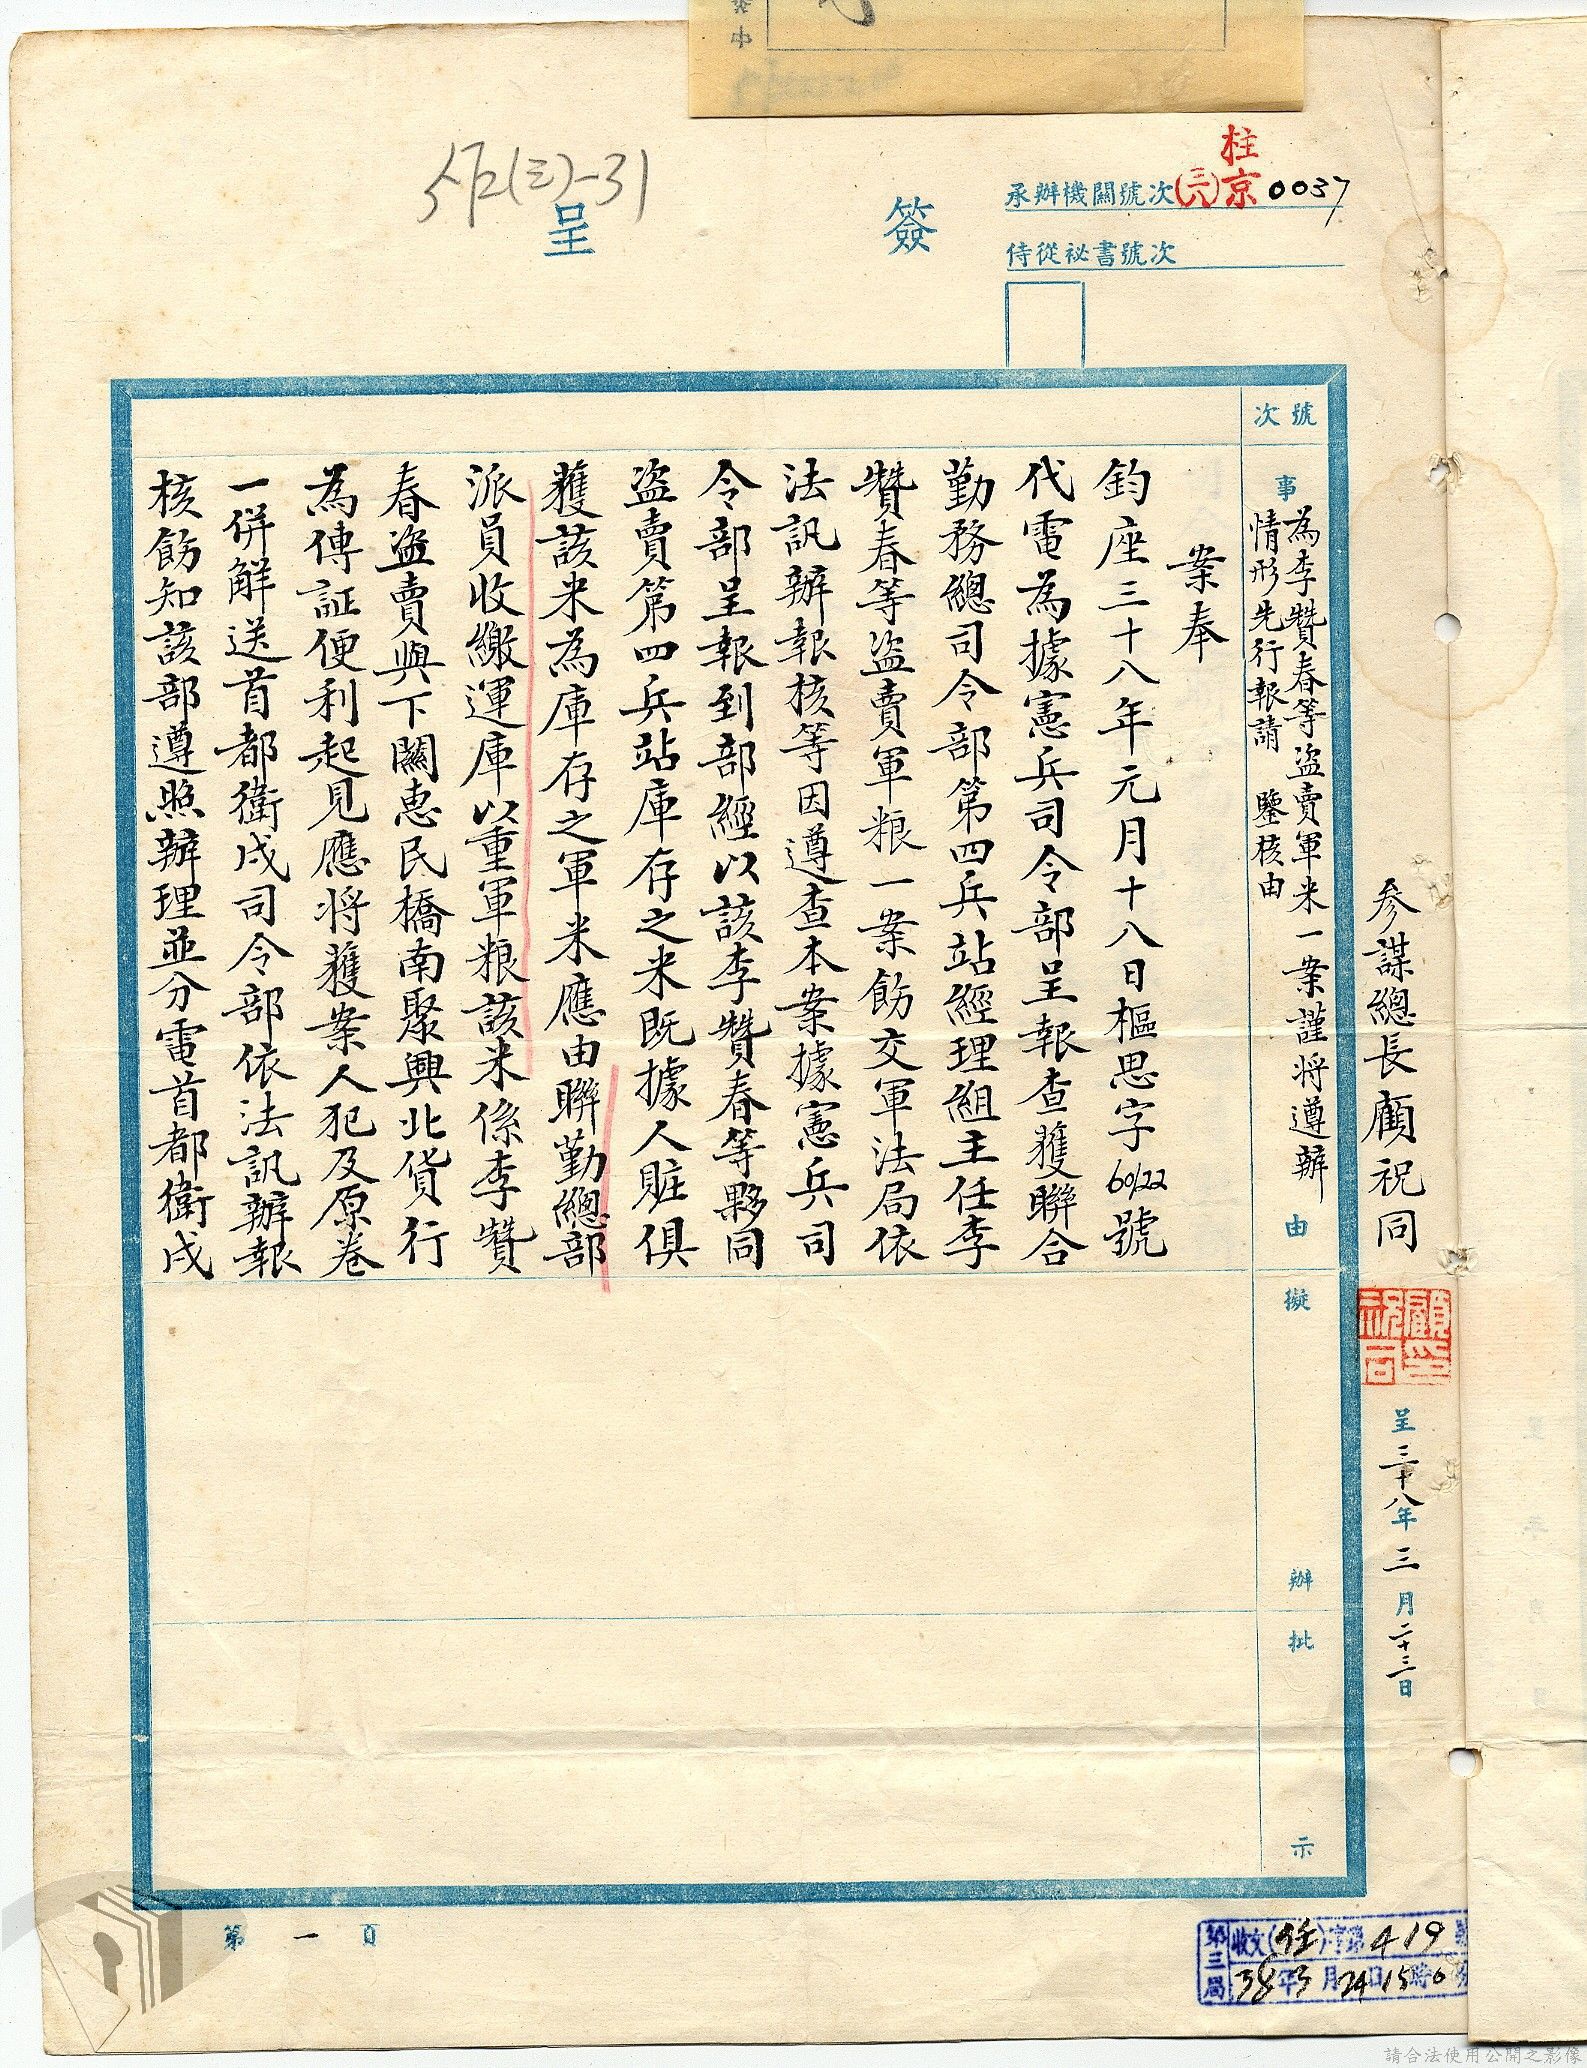 柱
承辦機關號次(三八)京0037
侍從祕書號次
簽呈
參謀總長顧祝同
呈三十八年三月二十三日
號次
事由
為李贊春等盜賣軍米一案謹將遵辦
情形先行報請 鑒核由
擬辦
批示
案奉
鈞座三十八年元月十八日樞思字60122號
代電為據憲兵司令部呈報查獲聯合
勤務總司令部第四兵站經理組主任李
贊春等盜賣軍粮一案飭交軍法局依
法訊辦報核等因遵查本案據憲兵司
令部呈報到部經以該李贊春等夥同
盜賣第四兵站庫存之米既據人賍俱
獲該米為庫存之軍米應由聯勤總部
派員收繳運庫以重軍粮該米係李贊
春盜賣與下關惠民橋南聚興北貨行
為傳証便利起見應將獲案人犯及原卷
一併解送首都衛戍司令部依法訊辦報
核飭知該部遵照辦理並分電首都衛戍
第一頁
第三局
收文(任)字第419號
38年3月24日15時0分
請合法使用公開之影像